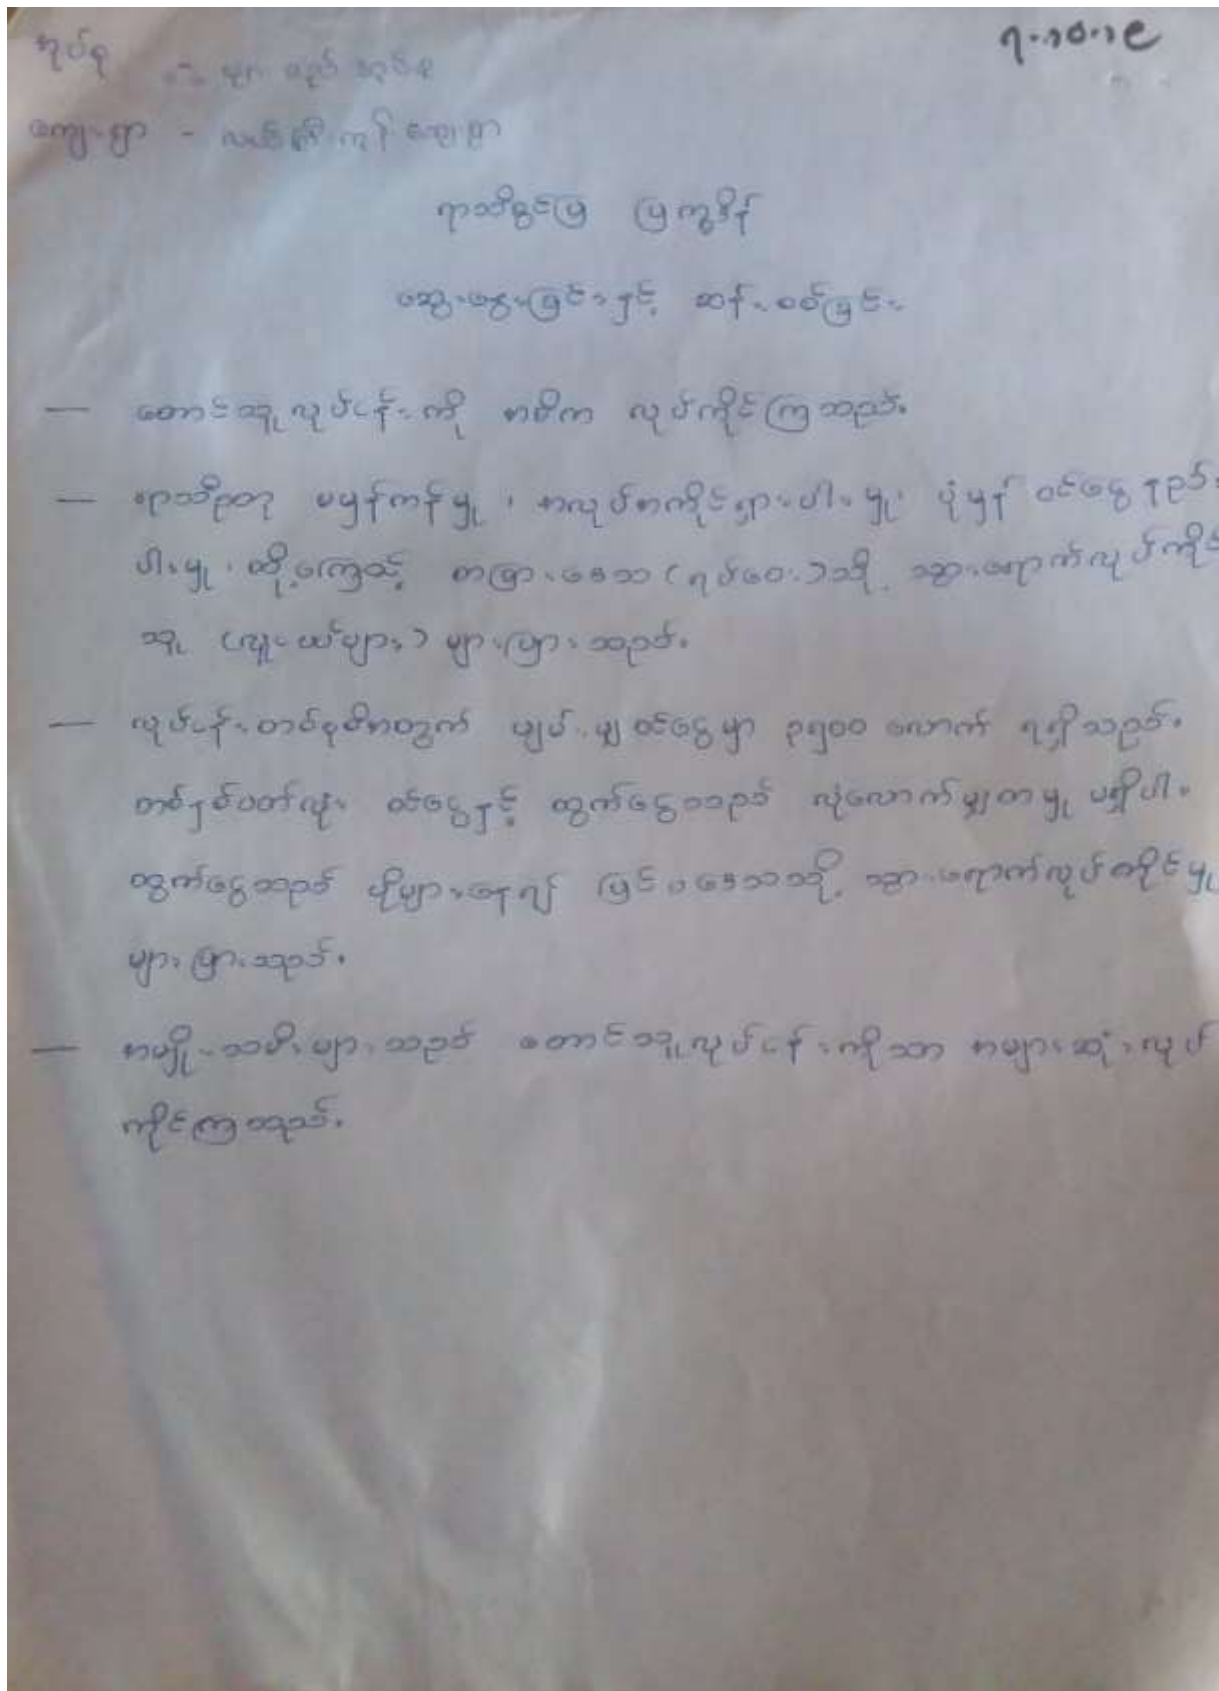 ၇.၁၀.၁၉
အုပ်စု
ကျေးရွာ - ကုန်း ကျေးရွာ
ရာသီခွင်ပြ ပြက္ခဒိန်
ဆွေးနွေးခြင်းနှင့် ဆန်းစစ်ခြင်း
— တောင်သူလုပ်ငန်းကို အဓိက လုပ်ကိုင်ကြသည်။
— ရာသီဥတု မမှန်ကန်မှု၊ အလုပ်အကိုင်ရှားပါးမှု၊ ပုံမှန် ဝင်ငွေနည်း
ပါးမှု၊ တို့ကြောင့် တခြားဒေသ (ရပ်ဝေး) သို့ သွားရောက်လုပ်ကိုင်
သူ (လူငယ်များ) များပြားသည်။
— လုပ်ငန်းတစ်ခုစီအတွက် ပျမ်းမျှဝင်ငွေမှာ ၃၅၀၀ လောက် ရရှိသည်။
တစ်နှစ်ပတ်လုံး ဝင်ငွေနှင့် ထွက်ငွေသည် လုံလောက်မျှတမှု မရှိပါ။
ထွက်ငွေသည် ပိုများနေ၍ ပြင်ပဒေသသို့ သွားရောက်လုပ်ကိုင်မှု
များပြားသည်။
— အမျိုးသမီးများသည် တောင်သူလုပ်ငန်းကိုသာ အများဆုံးလုပ်
ကိုင်ကြသည်။